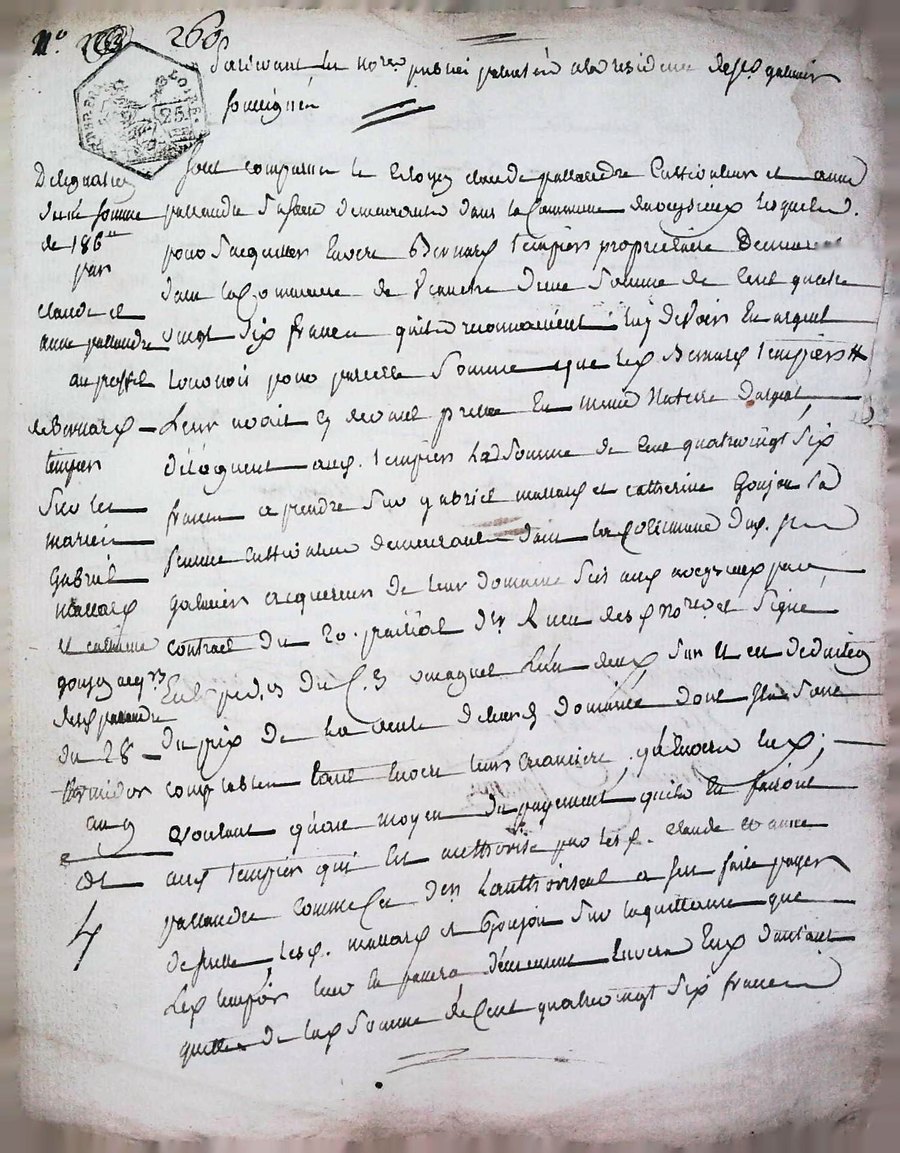 N° 260
Pardevant les no.res publics patentés à la residence de s.t galmier
soussignés
Delegation
d'une somme
de 186 tt
par
claude et
anne pallandre
au proffit
de Bernard
tempier
sur les
mariés
Gabriel
mallard
et catherine
goujon acq.rs
desd pallandre
du 28
thermidor
an 9
4
sont comparus le Citoyen claude pallandre Cultivateur et anne
pallandre sa sœur demeurants dans la Commune de veyrieux lesquels
pour s'acquitter Envers Bernard tempier propriétaire Demeurant
dans la Commune de d'une somme de Cent quatre
vingt six francs qu'ils reconnaissent luy devoir En argent
pour pareille somme que led Bernard tempier
Leur avoit cy devant prettée En même Nature d'argent
déleguent aud. tempier Lad somme de Cent quatrevingt six
francs a prendre sur gabriel mallard et catherine Goujon sa
femme Cultivateurs demeurants dans la Commune dud. s.t
galmier acquereurs de leur domaine sis aud veyrieux par
contract du 20. prairial d.er Reçu desd no.res et signé
En Exped.on dud. magnet L'un deux, sur et en deduction
du prix de la vente de leurd domaine dont ils sont
comptables tant Envers leurs creanciers, q'Envers Eux;
voulant qu'au moyen du payement qu'ils en fairont
aud tempier qui Est authorisé par lesd. claude et anne
pallandre comme ces d.ers L'authorisent a s'en faire payer
desdits lesd. mallard et Goujon sur la quittance que
Led tempier leur en passera, demeurent Envers Eux d'autant
quittes de lad somme de Cent quatrevingt six francs